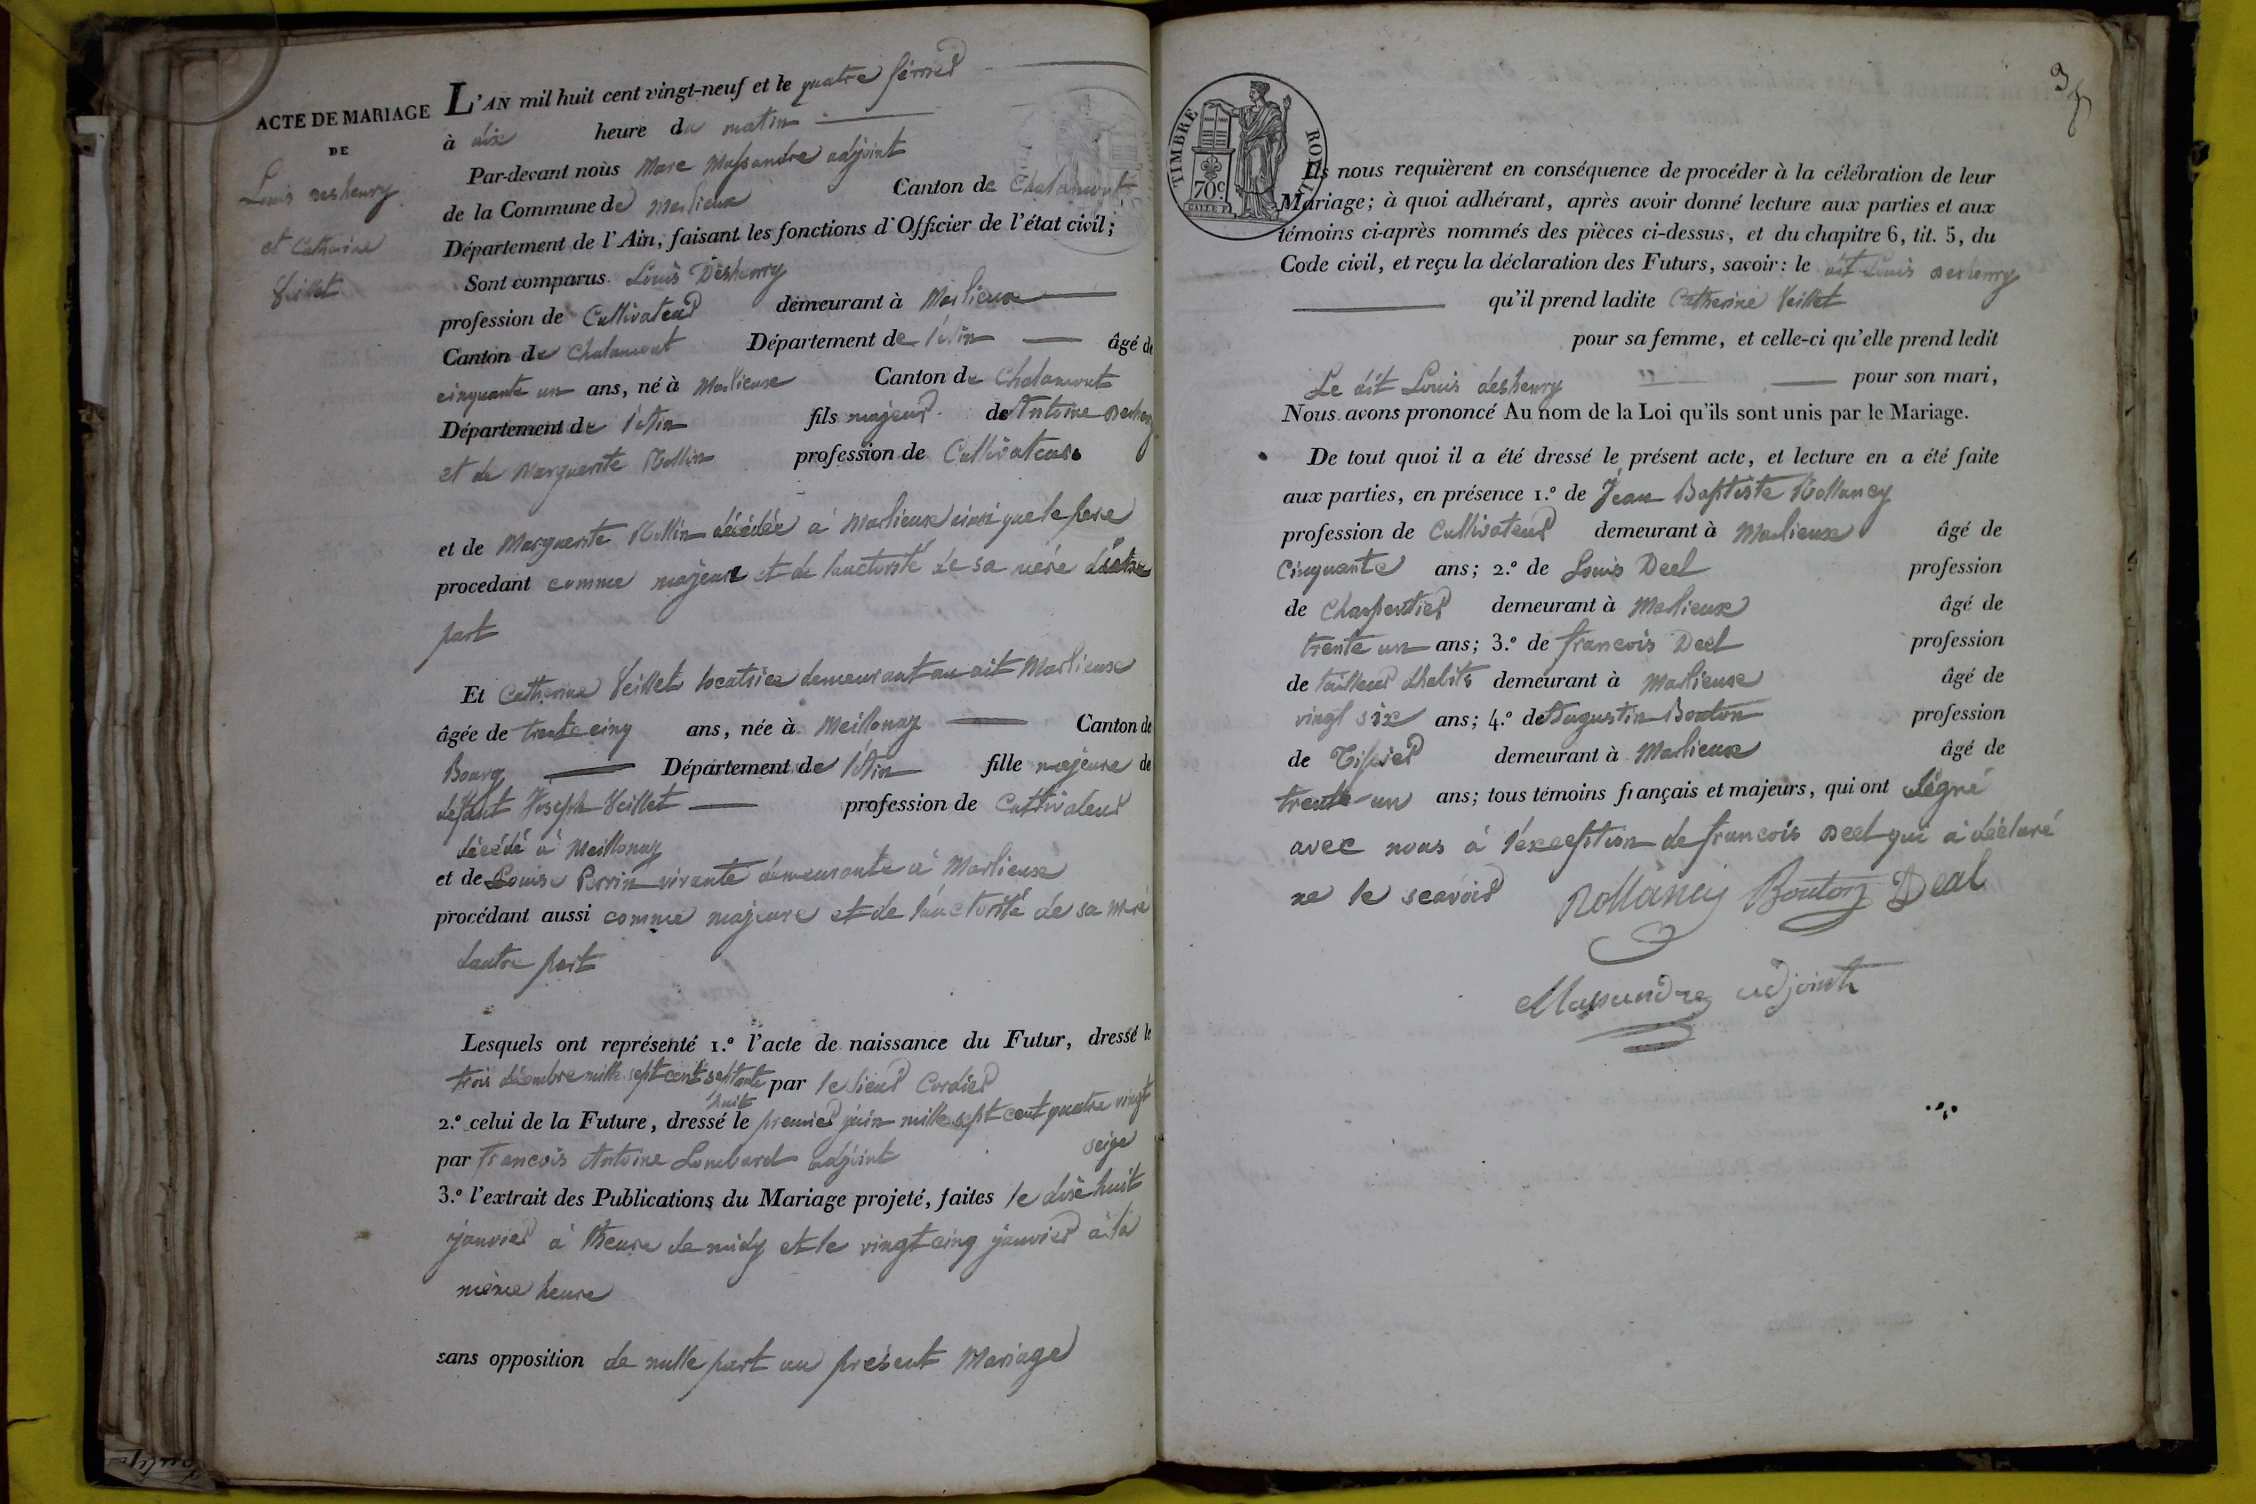 ACTE DE MARIAGE
DE
Louis desheury
et Catherine
Veillet
L'AN mil huit cent vingt-neuf et le quatre février
à dix heure du matin
Par-devant nous Marc Massandre adjoint
de la Commune de Marlieux Canton de Chalamont
Département de l'Ain, faisant les fonctions d'Officier de l'état civil;
Sont comparus Louis Desheury
profession de Cultivateur demeurant à Marlieux
Canton de Chalamont Département de l'Ain âgé de
cinquante un ans, né à Marlieux Canton de Chalamont
Département de l'Ain fils majeur de Antoine desheury
et de Marguerite Rollin profession de Cultivateurs
et de Marguerite Rollin décédée à Marlieux ainsi que le père
procedant comme majeur et de l'auctorité de sa mère
part
Et Catherine Veillet locatrice demeurant au dit Marlieux
âgée de trente cinq ans, née à Meillonay Canton de
Bourg Département de l'Ain fille majeure de
defunt Joseph Veillet profession de Cultivateur
décédé à Meillonay
et de Louise Perrin vivante demeurante à Marlieux
procédant aussi comme majeure et de l'auctorité de sa mère
dautre part
Lesquels ont représenté 1.º l'acte de naissance du Futur, dressé le
trois décembre mille sept cent septante par le sieur Cordier
huit
2.º celui de la Future, dressé le premier juin mille sept cent quatre vingt
seize
par francois Antoine Lombard adjoint
3.º l'extrait des Publications du Mariage projeté, faites le dix huit
janvier à l'heure de midy et le vingt cinq janvier à la
même heure
sans opposition de nulle part au présent Mariage
TIMBRE ROYAL
70c
Ils nous requièrent en conséquence de procéder à la célébration de leur
Mariage; à quoi adhérant, après avoir donné lecture aux parties et aux
témoins ci-après nommés des pièces ci-dessus, et du chapitre 6, tit. 5, du
Code civil, et reçu la déclaration des Futurs, savoir: le dit Louis desheury
qu'il prend ladite Catherine Veillet
pour sa femme, et celle-ci qu'elle prend ledit
Le dit Louis desheury pour son mari,
Nous avons prononcé Au nom de la Loi qu'ils sont unis par le Mariage.
De tout quoi il a été dressé le présent acte, et lecture en a été faite
aux parties, en présence 1.º de Jean Baptiste Rollancy
profession de Cultivateur demeurant à Marlieux âgé de
Cinquante ans; 2.º de Louis Deel profession
de Charpentier demeurant à Marlieux âgé de
trente un ans; 3.º de francois Deel profession
de tailleur dhabits demeurant à Marlieux âgé de
vingt six ans; 4.º de Augustin Bouton profession
de Tissier demeurant à Marlieux âgé de
trente un ans; tous témoins français et majeurs, qui ont signé
avec nous à l'exception de francois Deel qui à déclaré
ne le scavoir Rollancy Bouton Deal
Massandre adjoint